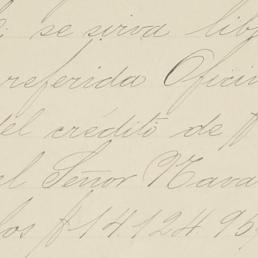 se sirva lib
referida Ofici
del crédito de
el Señor Nava
los $14.124.95